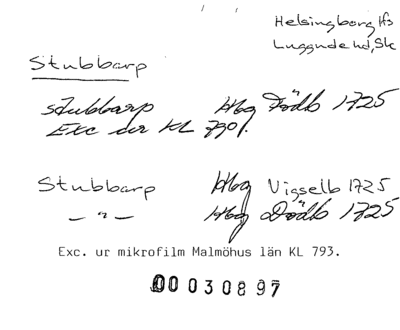 Helsingborg Hfs
Luggude hd, Sk
Stubbarp
Stubbarp Hbg Dödb 1725
Exc ur KL 790/.
Stubbarp Hbg Vigselb 1725
— " — Hbg Dödb 1725
Exc. ur mikrofilm Malmöhus län KL 793.
00030897